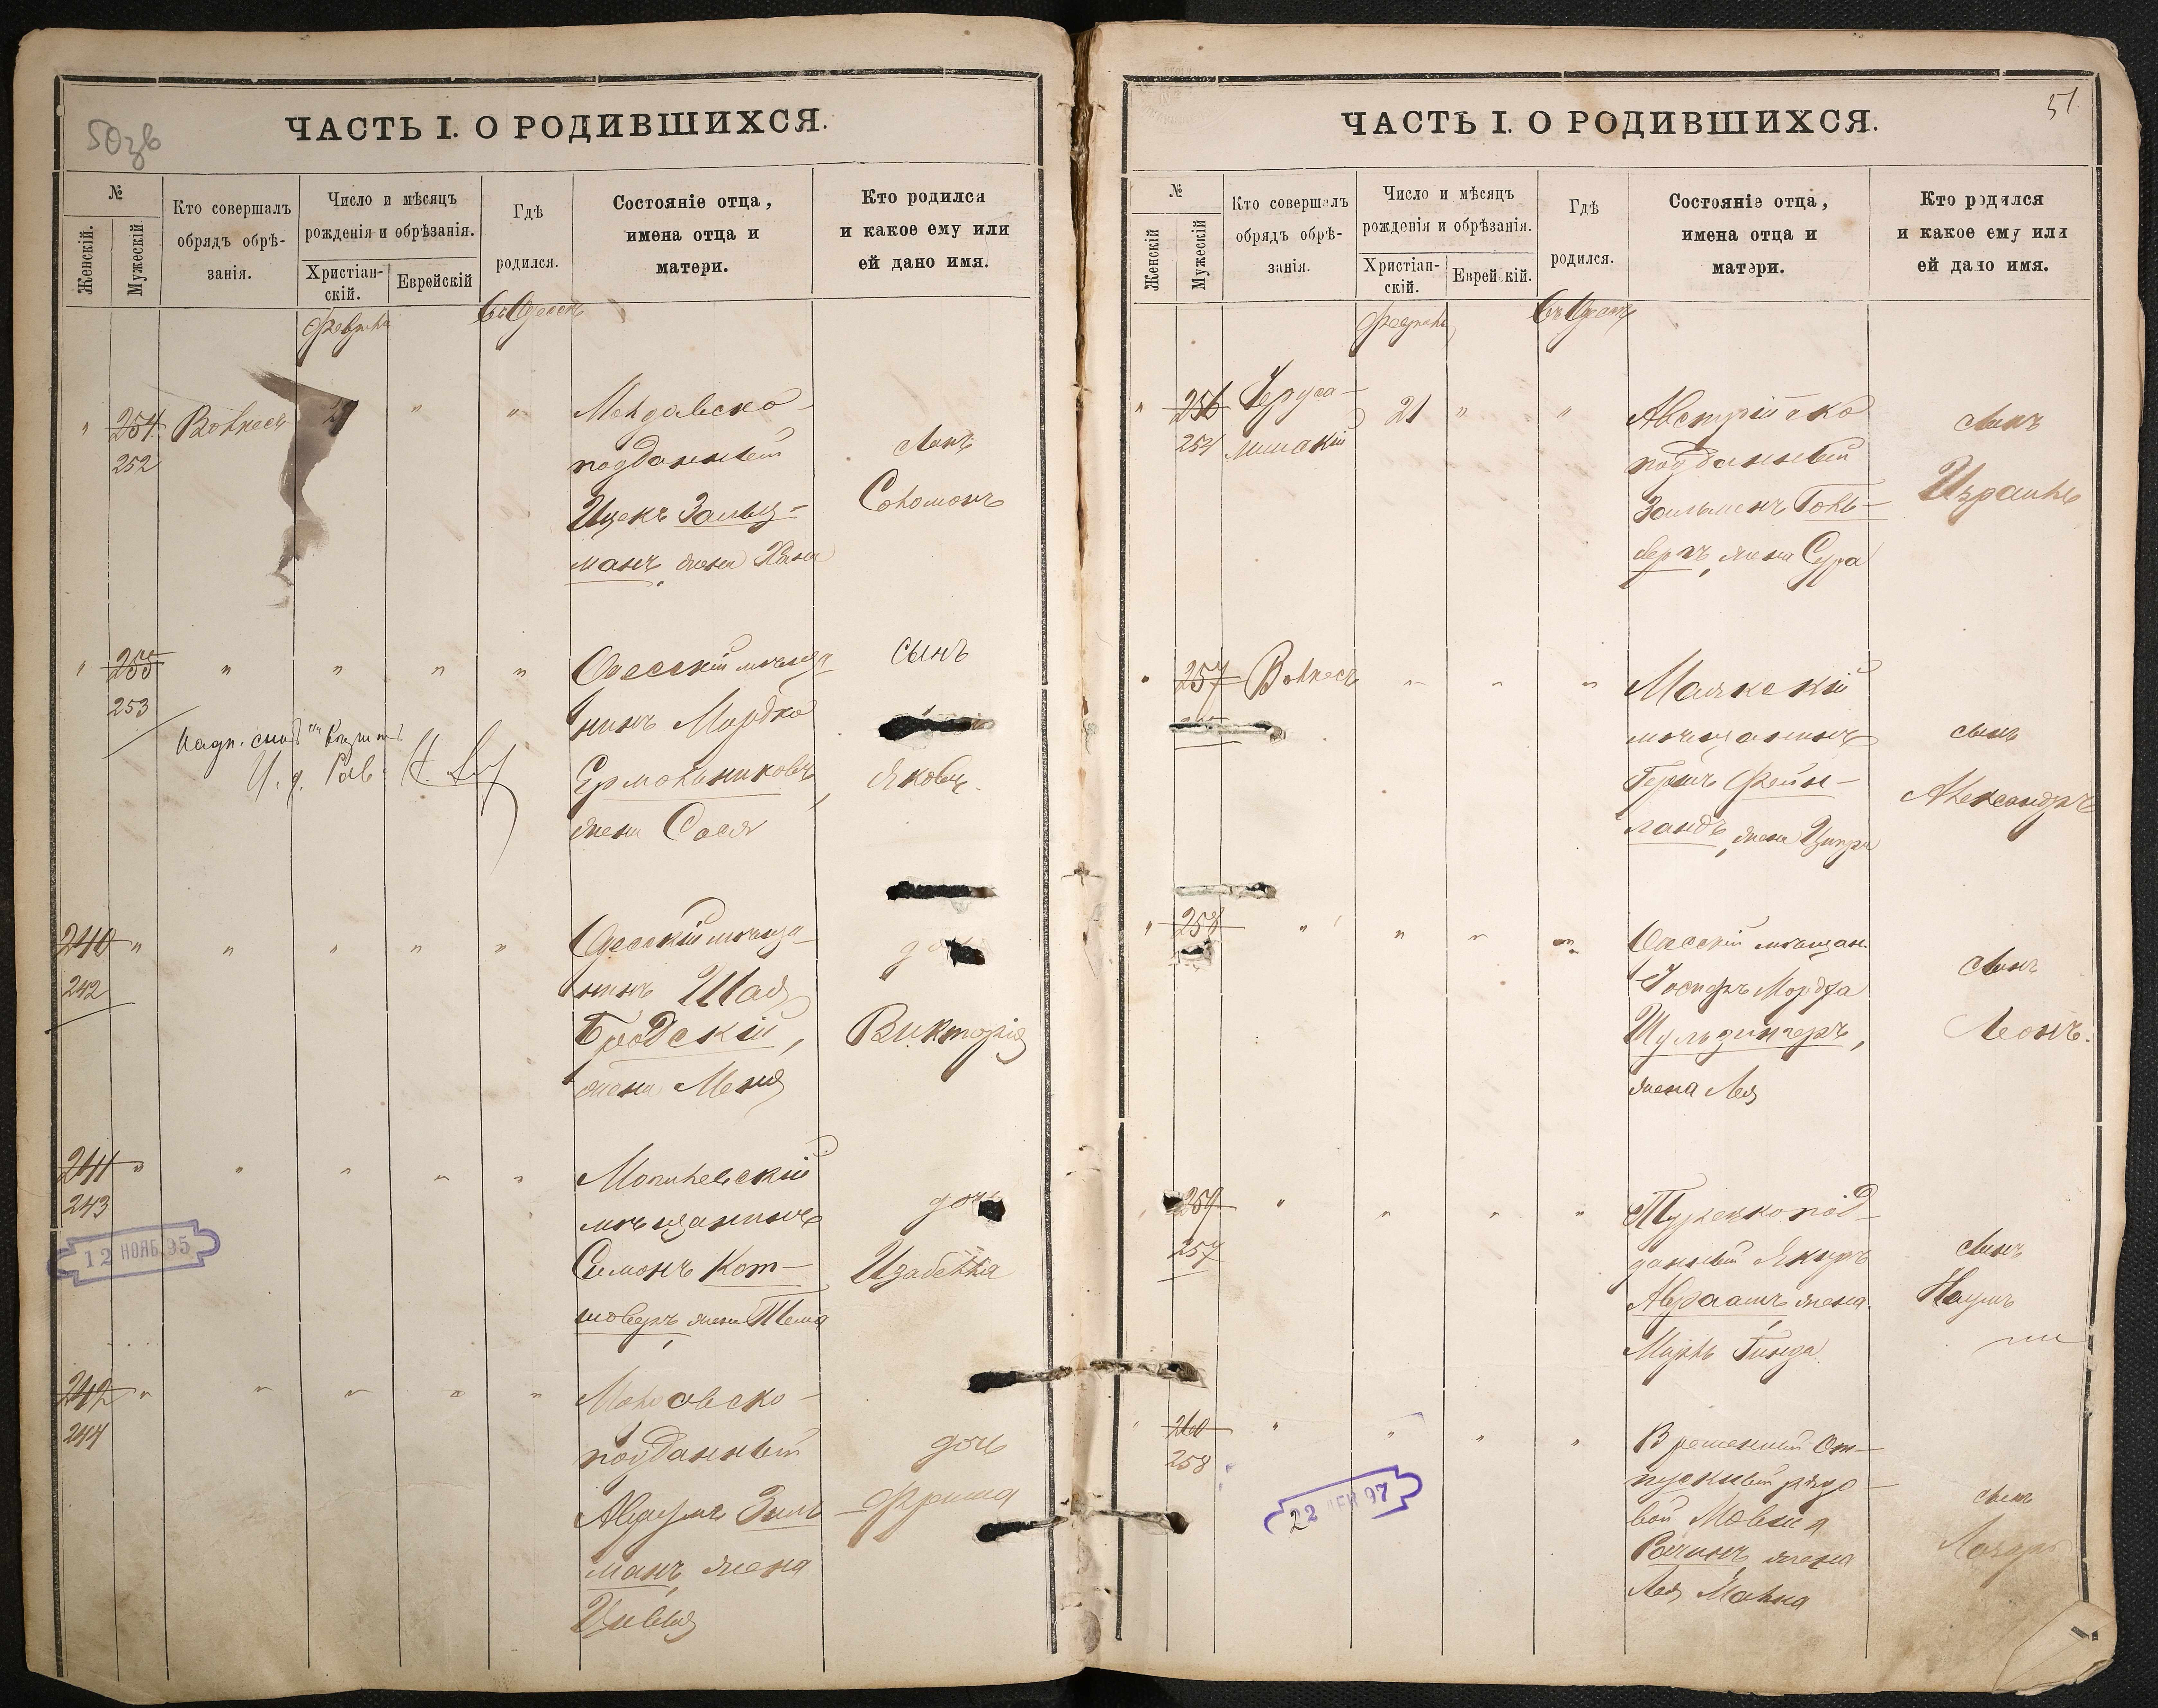 50зв
ЧАСТЬ I. О РОДИВШИХСЯ.
№
Женскій.
Мужескій
Кто совершалъ
обрядъ обрѣ-
занія.
Число и мѣсяцъ
рожденія и обрѣзанія.
Христіан-
скій.
Еврейскій
Гдѣ
родился.
Состояніе отца,
имена отца и
матери.
Кто родился
и какое ему или
ей дано имя.
Февраля
Въ Одессѣ
" 254 252 Волкесъ " "
Молдавско-
подданный
Ицекъ Зальц-
манъ, жена Хана
сынъ
Соломонъ
" 255 253 " " " "
Одесскій мѣща
нинъ Мордко
Ермольниковъ,
жена Сося
сынъ
Яковъ.
240 242 " " " " "
Одесскій мѣща-
нинъ Шая
Бродскій,
жена Меня
дочь
Викторія
241 243 " " " " "
Могилевскій
мѣщанинъ
Симонъ Кот-
ловеръ, жена
дочь
Изабелла
12 НОЯБ 95
242 244 " " " " "
Молдавско-
подданный
Авраумъ Зиль
манъ, жена
Цивья
дочь
Фрима
51.
ЧАСТЬ I. О РОДИВШИХСЯ.
№
Женскій
Мужескій
Кто совершалъ
обрядъ обрѣ-
занія.
Число и мѣсяцъ
рожденія и обрѣзанія.
Христіан-
скій.
Еврейскій.
Гдѣ
родился.
Состояніе отца,
имена отца и
матери.
Кто родился
и какое ему или
ей дано имя.
Февраля
Въ Одессѣ
" 256 254 21 " "
Австрійско
подданный
Зальменъ Голь-
бергъ, жена Сура
сынъ
Израиль
" 257 Волкесъ " " "
Маякскій
мѣщанинъ
Гершъ Фейн-
ландъ, жена Ципра
сынъ
Александръ
" 258 " " " "
Одесскій мѣщан.
Іосифъ Мордха
Шульзингеръ,
жена Лея
сынъ
Леонъ.
259 257 " " " "
Турецкопод-
данный Якиръ
Авраамъ жена
Гинда
сынъ
Наумъ
" 260 258 " " " "
Временный От-
пускный рядо-
вой Мовша
жена
Лея Малка
сынъ
Лазарь
22 ДЕК 97